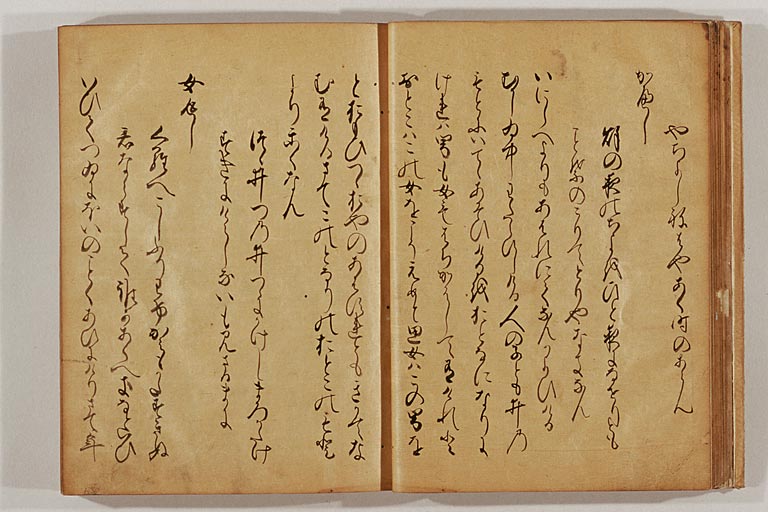 やちよしねはやあく時のあらん
かへし
秋の夜のちよをひと夜になせりとも
ことはのこりてとりやなきなん
いにしへよりもあはれにてなんかよひける
むかしゐ中わたらひしける人のこども井の
もとにいてゝあそひけるをおとなになりに
けれは男も女もはちかはしてありけれと
おとこはこの女をこそえめと思女はこの男を
とおもひつゝおやのあはすれともきかてな
むありけるさてこのとなりのおとこのもと
よりかくなん
つゝ井つの井つゝにかけしまろかたけ
すきにけらしないもみさるまに
女返し
くらへこしふりわけかみもかたすきぬ
君ならすして誰かあくへきなといひ
いひてつゐにほいのことくあひにけりさて年